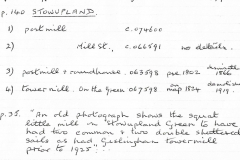 p.140 STOWUPLAND.
1) postmill c.074600
2) Mill St., c.066591 no details.
3) postmill & roundhouse. 063598 pre 1802 1866
4) towermill. On the Green 067598 on map 1824 1919.
p.35. "An old photograph shows the squat
little mill on Stowupland Green to have
had two common & two double shuttered
sails as had Gislingham towermill
prior to 1925".